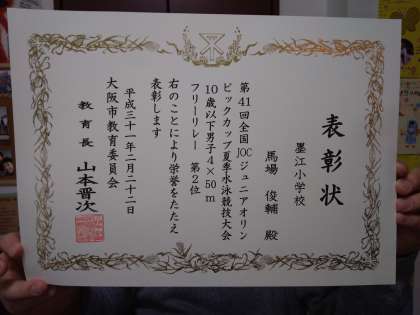 表彰状
墨江小学校
馬場 俊輔 殿
第41回全国JOCジュニアオリン
ピックカップ夏季水泳競技大会
10歳以下男子4×50m
フリーリレー 第2位
右のことにより栄誉をたたえ
表彰します
平成三十一年二月二十二日
大阪市教育委員会
教育長 山本晋次